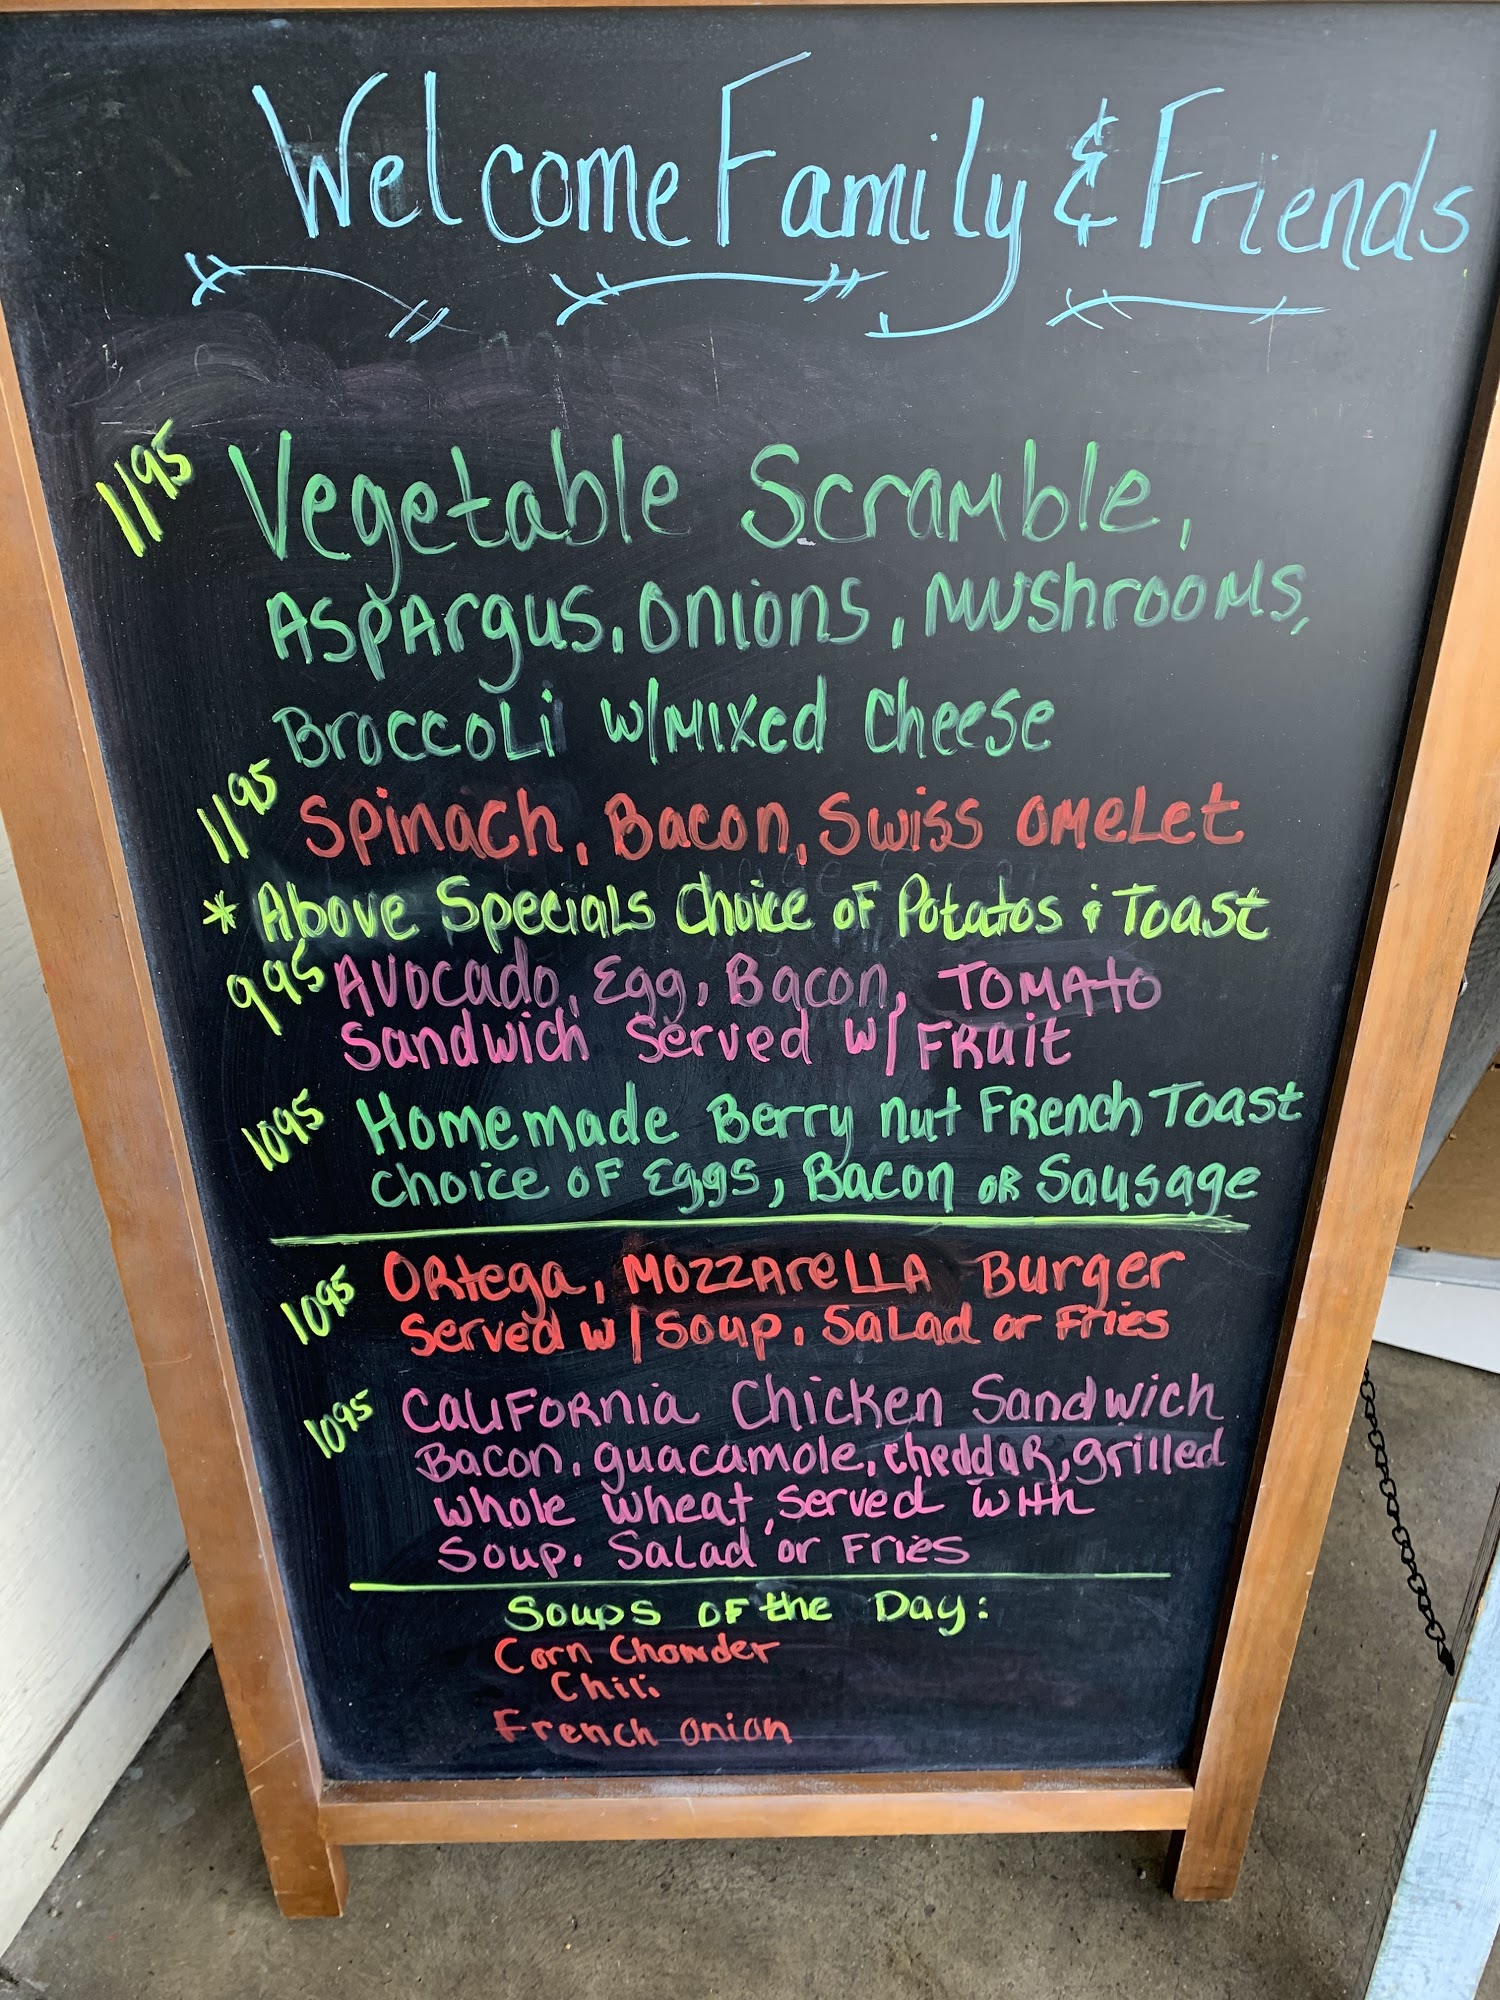 Welcome Family & Friends
1195 Vegetable Scramble,
Aspargus, onions, mushrooms,
Broccoli w/mixed cheese
1195 Spinach, Bacon, Swiss omelet
* Above Specials choice of Potatos & Toast
995 Avocado, Egg, Bacon, Tomato
Sandwich Served w/ Fruit
1095 Homemade Berry nut French Toast
choice of Eggs, Bacon or Sausage
1095 Ortega, Mozzarella Burger
Served w/ soup, Salad or Fries
1095 California Chicken Sandwich
Bacon, guacamole, cheddar, grilled
whole wheat, served with
Soup, Salad or Fries
Soups of the Day:
Corn Chowder
Chili
French onion